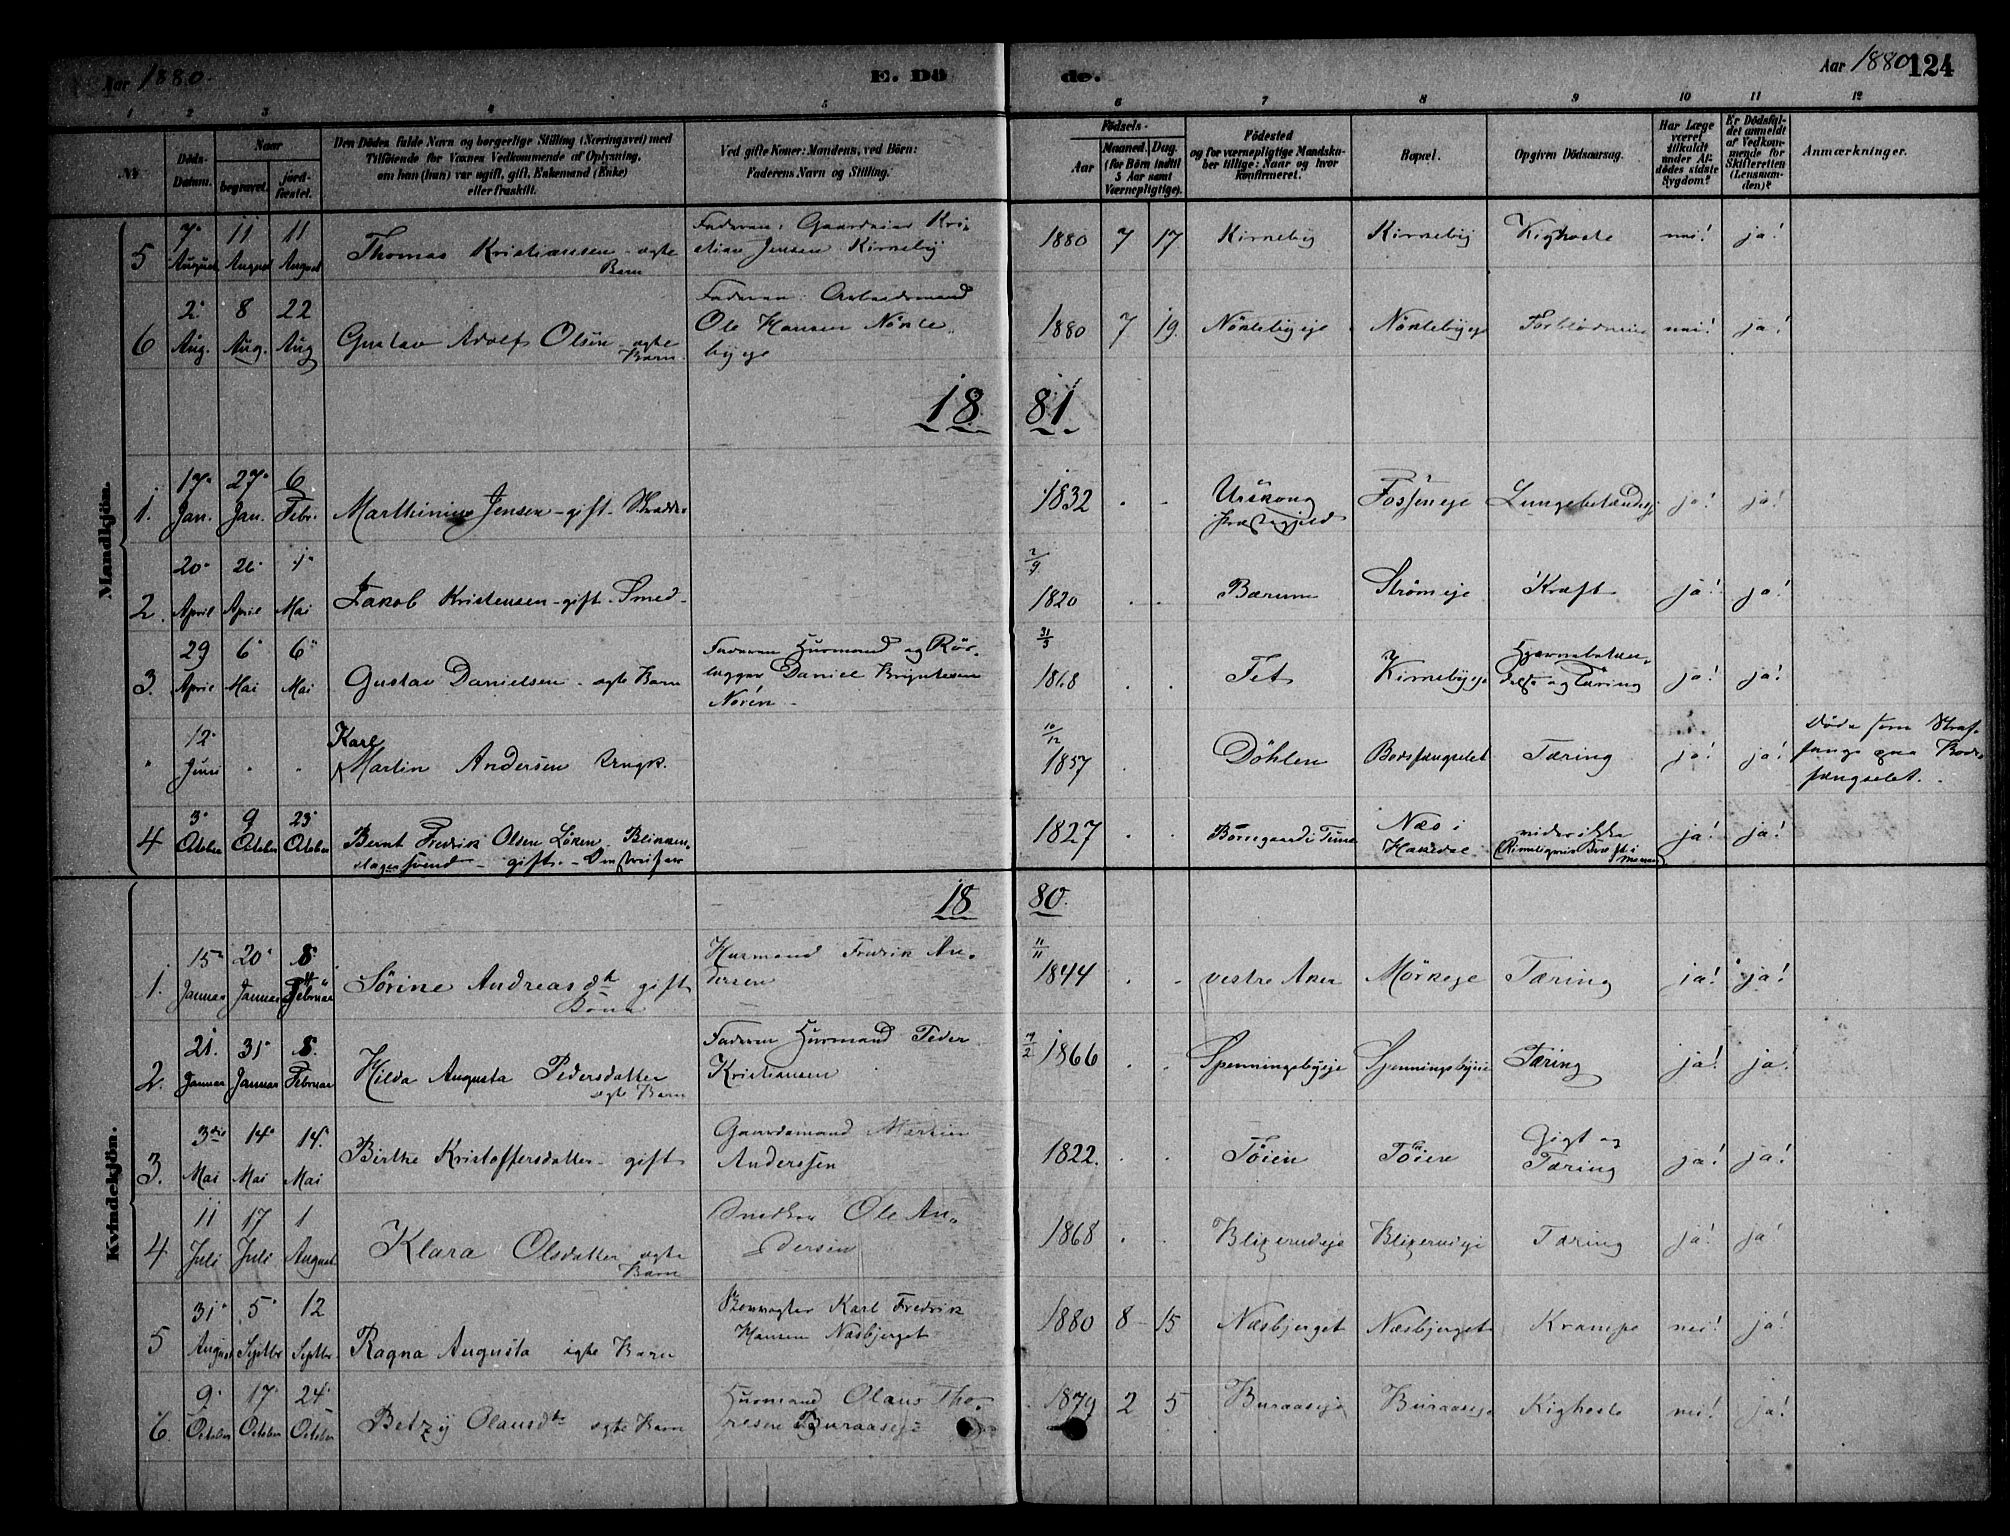 Aar 1880. E. Dö de. Aar 1880 124
1 2 3 4 5 6 7 8 9 10 11 12
No. Döds-Datum. Naar begravet. jordfæstet. Den Dödes fulde Navn og borgerlige Stilling (Næringsvei) med Tilföiende for Voxnes Vedkommende af Oplysning, om han (hun) var ugift, gift, Enkemand (Enke) eller fraskilt. Ved gifte Koner: Mandens, ved Börn: Faderens Navn og Stilling. Födsels- Aar Maaned. Dag. (for Börn indtil 5 Aar samt Værnepligtige). Födested og for værnepligtige Mandskaber tillige: Naar og hvor konfirmeret. Bopæl. Opgiven Dödsaarsag. Har Læge været tilkaldt under Afdödes sidste Sygdom? Er Dödsfaldet anmeldt af Vedkommende for Skifteretten (Lensmanden)? Anmærkninger.
Mandkjön.
5 7 August 11 August 11 August Thomas Kristiansen ægte Barn Faderen: Gaardeier Kristian Jensen Kirneby 1880 7 17 Kirneby Kirneby Kighoste nei! ja!
6 2 Aug. 8 Aug. 22 Aug Gustav Adolf Olsen ægte Barn Faderen: Arbeidsmand Ole Hansen 1880 7 19. nei! ja!
18 81
1. 17 Jan. 27 Jan. 6 Febr. Marthinius Jensen - gift - 1832 Urskoug Præstegjeld Fosseneje Lungebetændelse ja! ja!
2. 20 April 26 April 1 Mai Jakob Kristensen - gift - Smed 1820 Bærum Strömeje Kræft ja! ja!
3. 29 April 6 Mai 6 Mai Gustav Danielsen - ægte Barn Faderen Husmand og Rörlægger Daniel Noren 31/3 1868 Fet Kirnebyeje Hjernebetændelse og Tæring ja! ja!
" 12 Juni " " Karl Martin Andersen Ungk. 10/12 1857 Döhlen Bodsfængselet Tæring ja! ja! Döde som Straffange paa Bodsfængselet.
4 3 Otober 9 Otober 23 Otober Bernt Fredrik Olsen Löken Blikkenslagersvend - gift - Omstreifer 1827 Næs i ja! ja!
Kvindekjön.
18 80.
1. 15 Januar 20 Januar 8 Februar Sörine Andreasdtr gift Kone Husmand Fredrik Andersen 11/11 1844 vestre Aker Mörkeje Tæring ja! ja!
2. 21. Januar 31 Januar 8. Februar Hilda Augusta Pedersdatter ægte Barn Faderen Husmand Peder Kristiansen 1866 Spenningsbyeje Spenningsbyeje Tæring ja! ja!
3. 3die Mai 14 Mai 14. Mai Birthe Kristoffersdatter - gift Gaardsmand Martin Anderssen 1822. Töien Töien Gigt og Tæring ja! ja!
4. 11 Juli 17 Juli 1 August Klara Olsdatter ægte Barn Snedker Ole Andersen 1868 Blixrudeje Blixrudeje Tæring ja! ja
5 31 August 5 Septbr 12 Septbr. Ragna Augusta ægte Barn Karl Fredrik Hansen Næsbjerget 1880 8 15 Næsbjerget Næsbjerget Krampe nei! ja!
6. 9 October 17 October 24 October Betzy Olausdtr ægte Barn Husmand Olaus Thoresen Buraaseje 1879 2 5 Buraaseje Buraaseje Kighoste nei! ja!